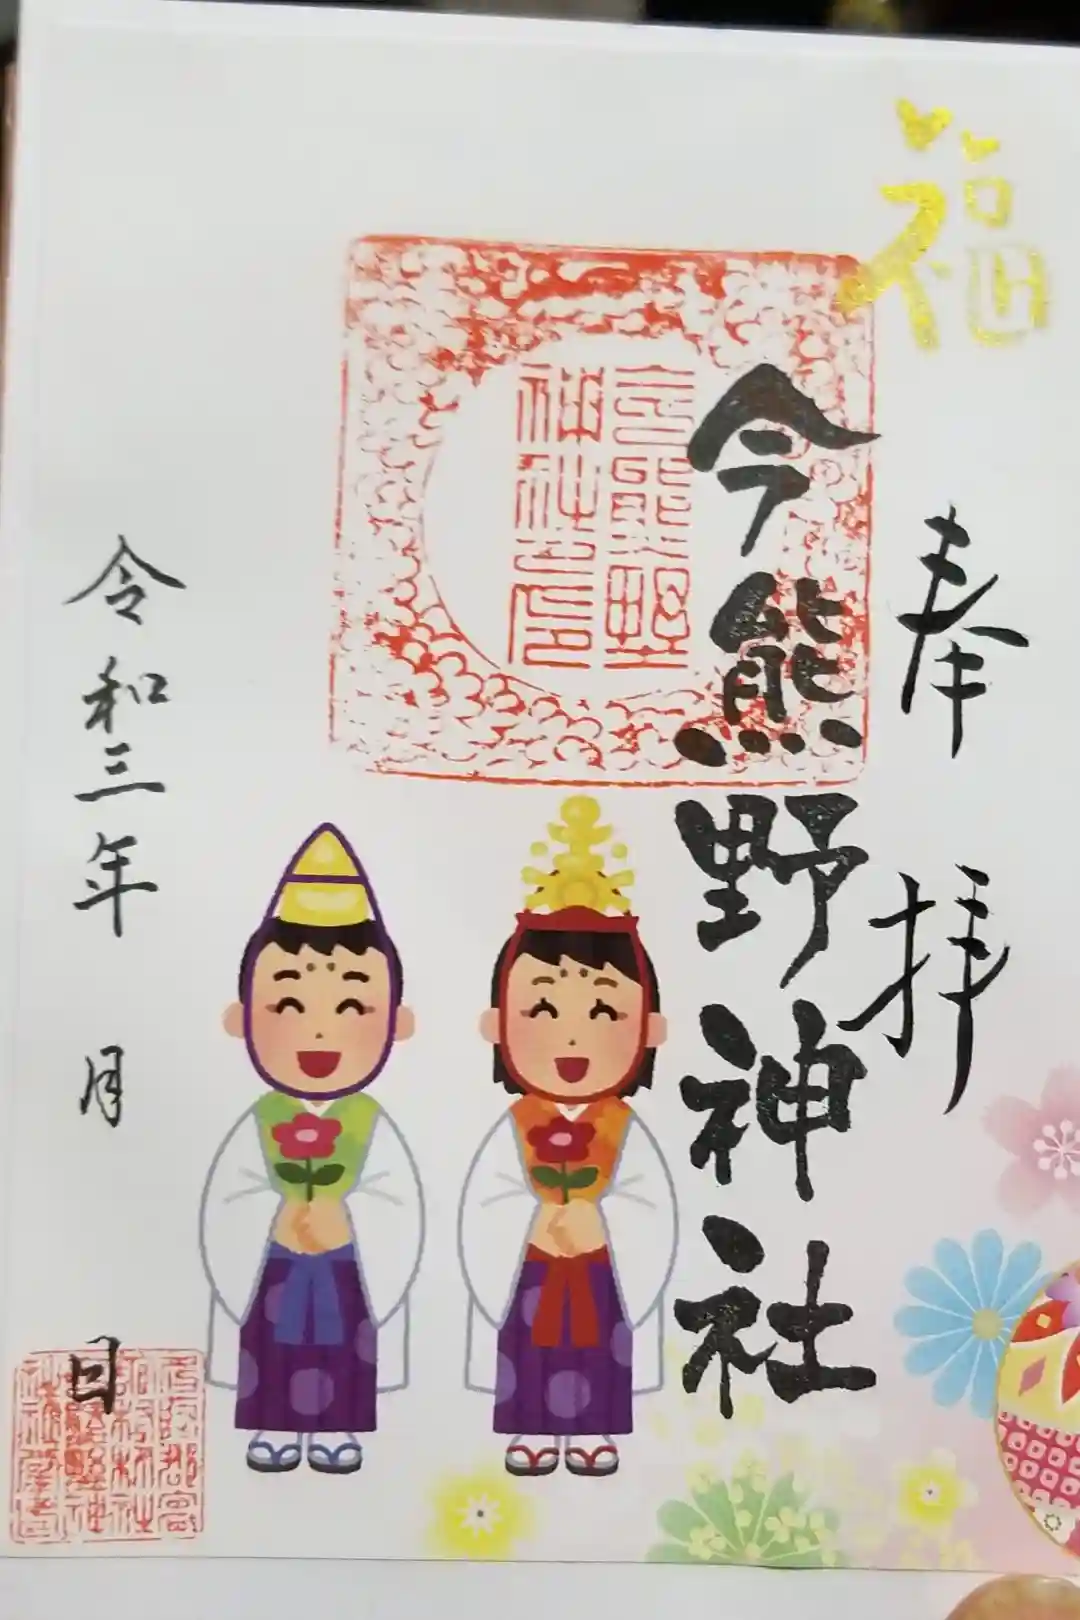 福
奉拝
今熊野神社
今熊野
神社之印
令和三年 月 日